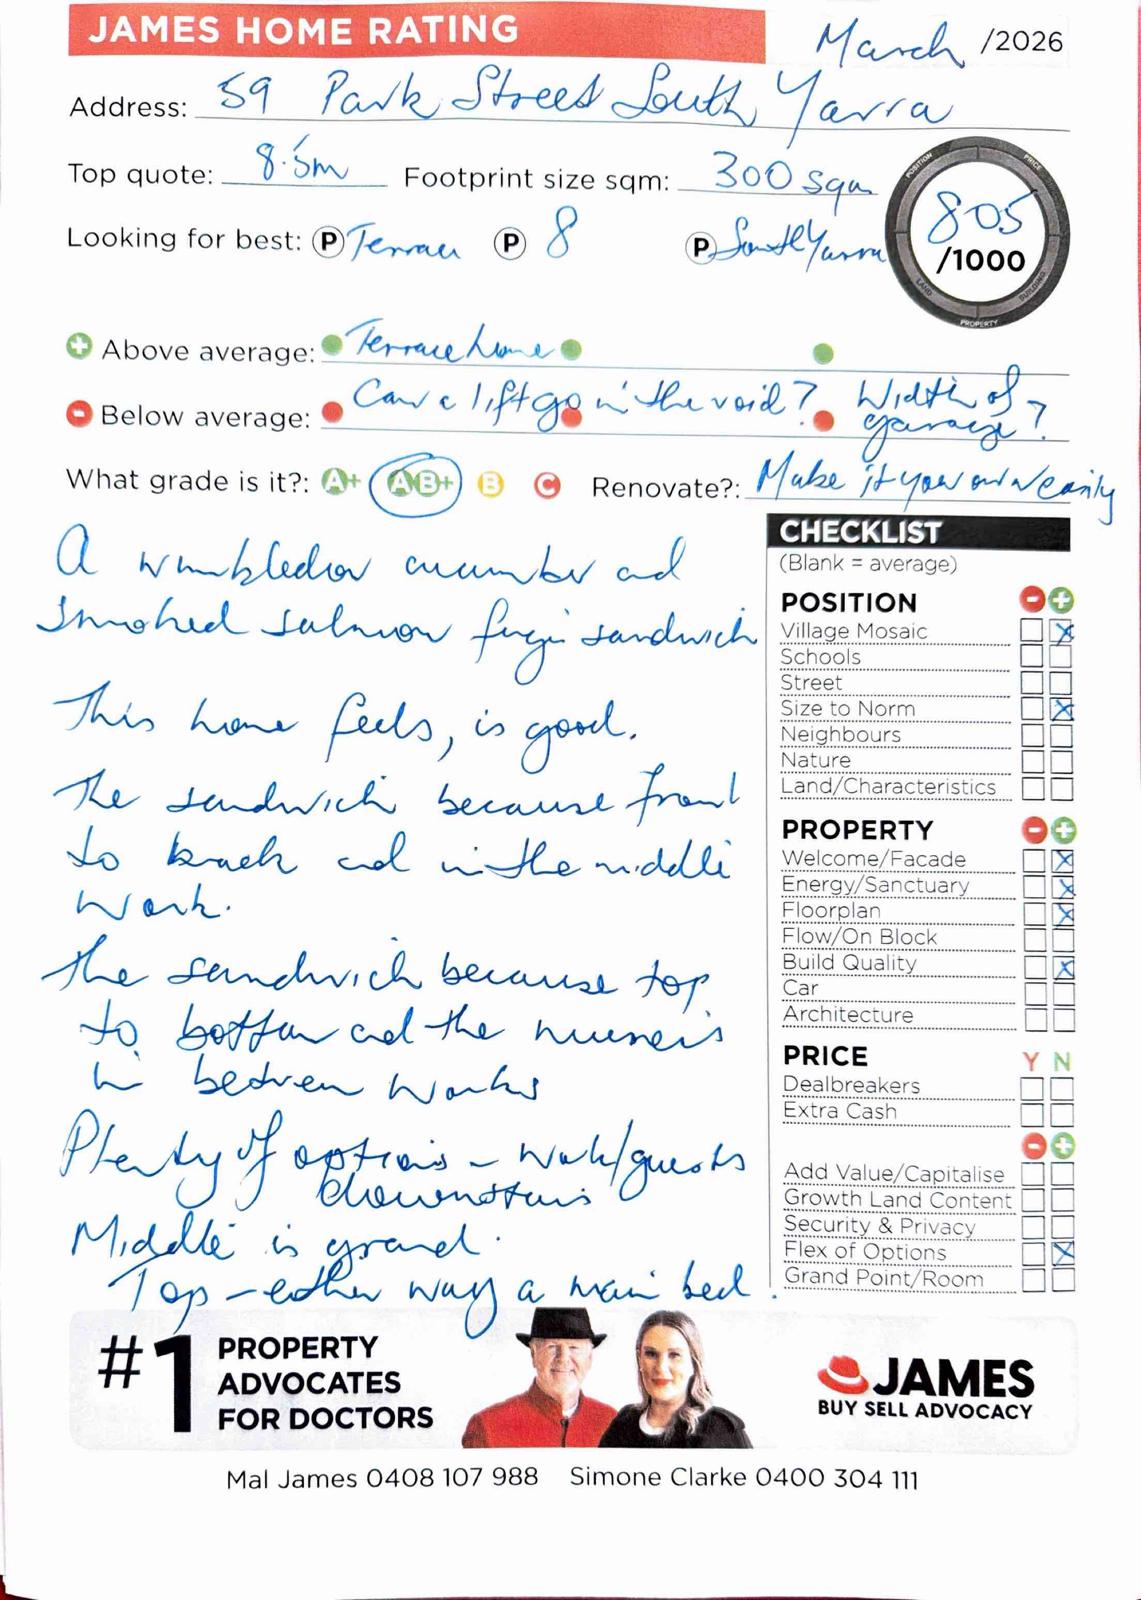 JAMES HOME RATING
March /2026
Address: 59 Park Street South Yarra
Top quote: 8.5m Footprint size sqm: 300 sqm
805
/1000
POSITION PRICE LAND BUILDING PROPERTY
Looking for best: P Terrace P 8 P South Yarra
Above average: Terrace home
Below average: Can a lift go in the void? Width of garage?
What grade is it?: A+ AB+ B C Renovate?: Make it your own easily
A wimbledon cucumber and
smoked salmon finger sandwich
This home feels, is good.
The sandwich because front
to back and in the middle
work.
The sandwich because top
to bottom and the
in between works
Plenty of options - work/guests
downstairs
Middle is grand.
Top - either way a main bed.
CHECKLIST
(Blank = average)
POSITION - +
Village Mosaic X
Schools
Street
Size to Norm X
Neighbours
Nature
Land/Characteristics
PROPERTY - +
Welcome/Facade X
Energy/Sanctuary X
Floorplan X
Flow/On Block
Build Quality X
Car
Architecture
PRICE Y N
Dealbreakers
Extra Cash
- +
Add Value/Capitalise
Growth Land Content
Security & Privacy
Flex of Options X
Grand Point/Room
#1 PROPERTY
ADVOCATES
FOR DOCTORS
JAMES
BUY SELL ADVOCACY
Mal James 0408 107 988 Simone Clarke 0400 304 111